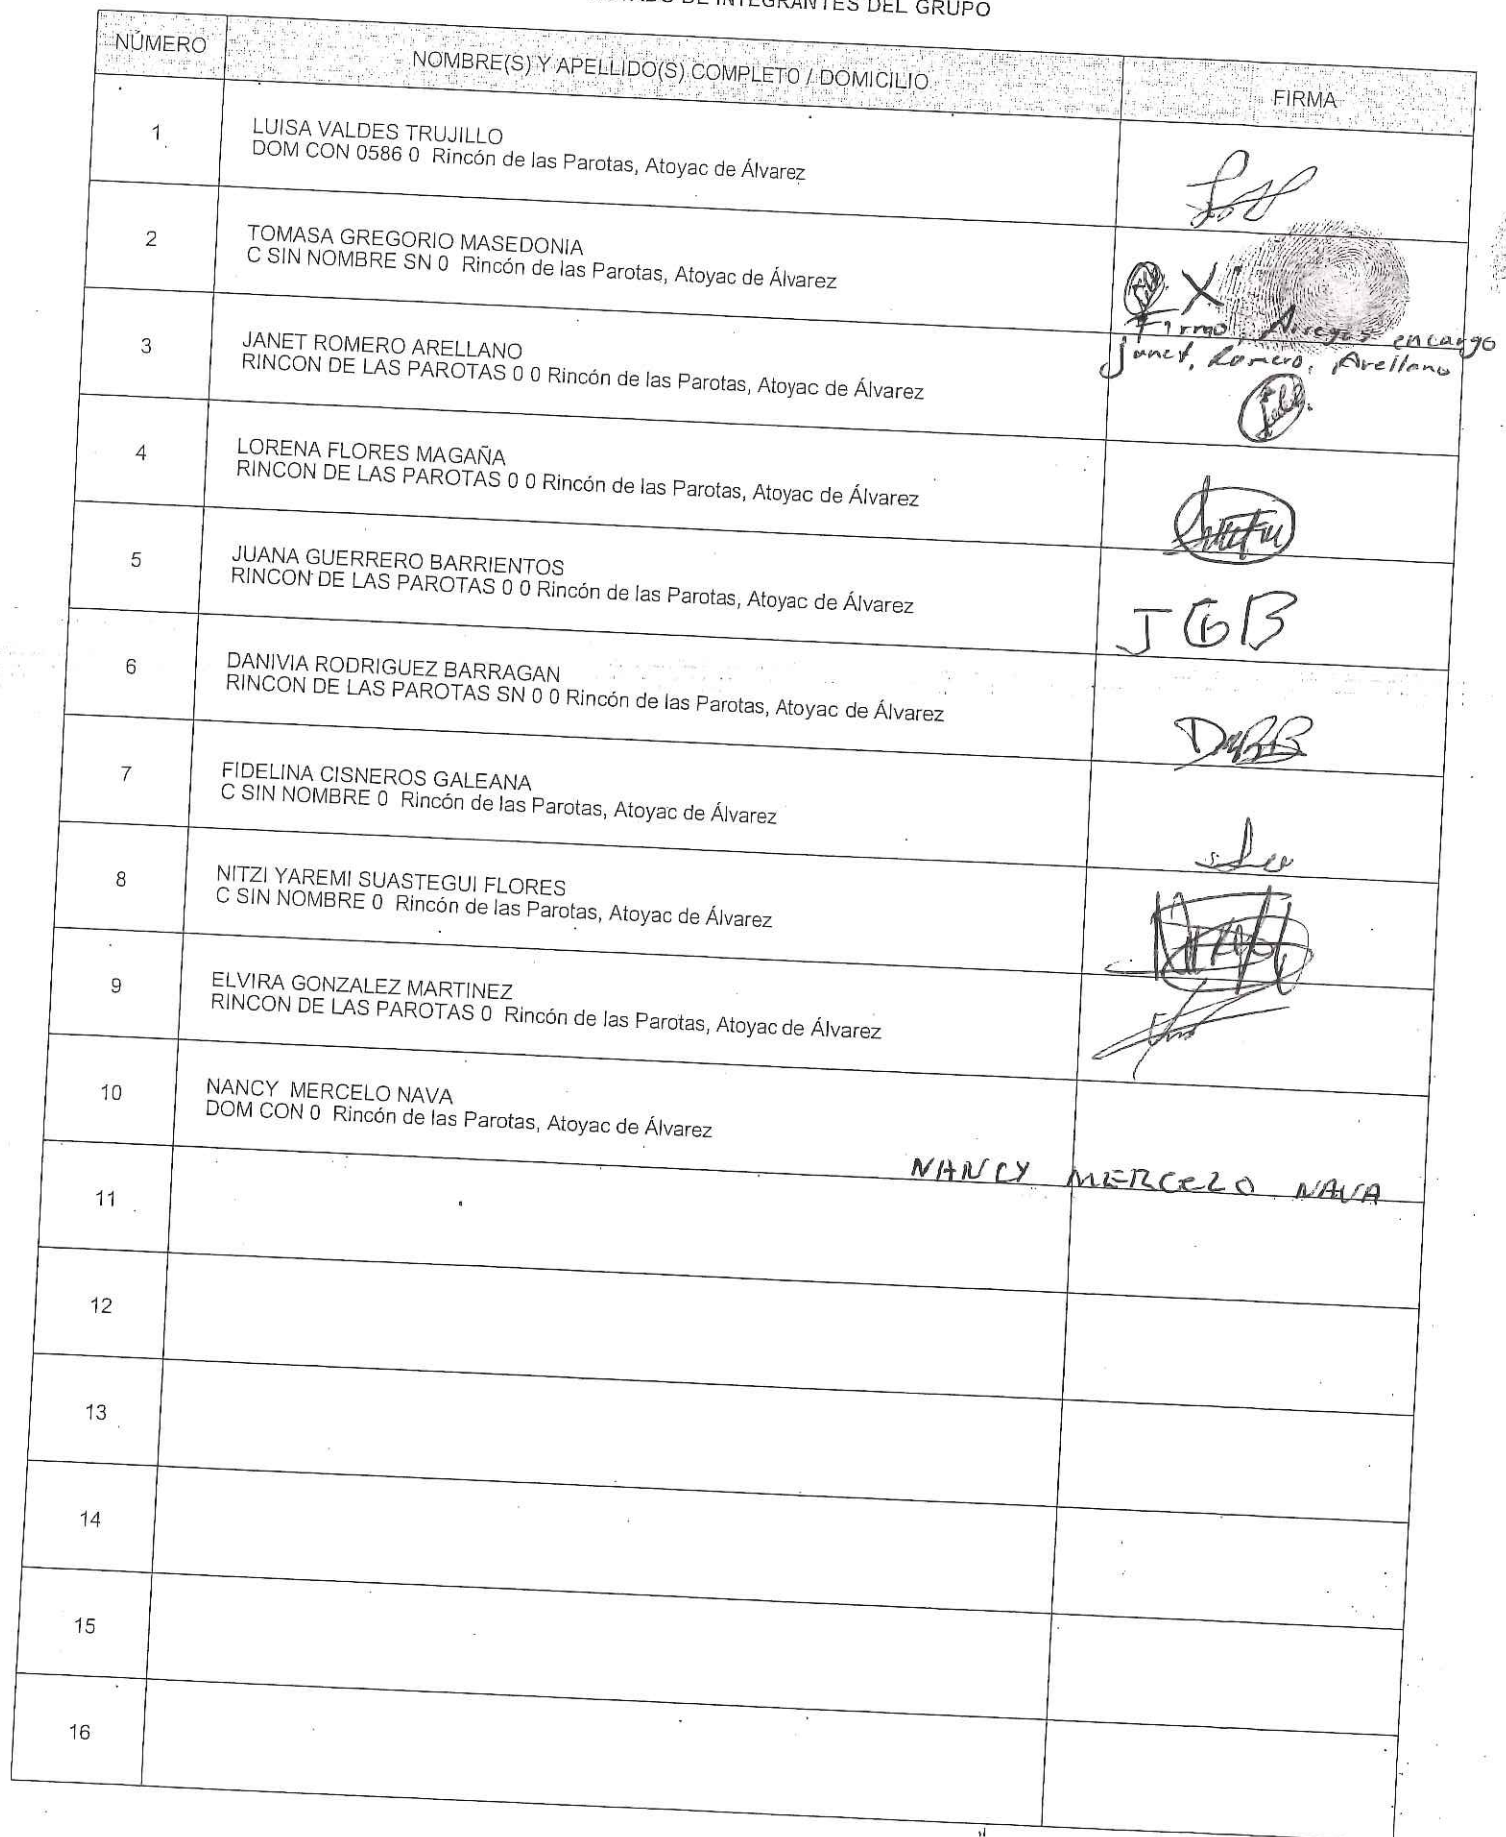 DE INTEGRANTES DEL GRUPO
NÚMERO NOMBRE(S) Y APELLIDO(S) COMPLETO / DOMICILIO FIRMA
1 LUISA VALDES TRUJILLO
DOM CON 0586 0 Rincón de las Parotas, Atoyac de Álvarez
2 TOMASA GREGORIO MASEDONIA
C SIN NOMBRE SN 0 Rincón de las Parotas, Atoyac de Álvarez
X
Firmo Aruegos encargo
3 JANET ROMERO ARELLANO
RINCON DE LAS PAROTAS 0 0 Rincón de las Parotas, Atoyac de Álvarez
janet, Romero, Arellano
4 LORENA FLORES MAGAÑA
RINCON DE LAS PAROTAS 0 0 Rincón de las Parotas, Atoyac de Álvarez
5 JUANA GUERRERO BARRIENTOS
RINCON DE LAS PAROTAS 0 0 Rincón de las Parotas, Atoyac de Álvarez
JGB
6 DANIVIA RODRIGUEZ BARRAGAN
RINCON DE LAS PAROTAS SN 0 0 Rincón de las Parotas, Atoyac de Álvarez
7 FIDELINA CISNEROS GALEANA
C SIN NOMBRE 0 Rincón de las Parotas, Atoyac de Álvarez
8 NITZI YAREMI SUASTEGUI FLORES
C SIN NOMBRE 0 Rincón de las Parotas, Atoyac de Álvarez
9 ELVIRA GONZALEZ MARTINEZ
RINCON DE LAS PAROTAS 0 Rincón de las Parotas, Atoyac de Álvarez
10 NANCY MERCELO NAVA
DOM CON 0 Rincón de las Parotas, Atoyac de Álvarez
NANCY MERCELO NAVA
11
12
13
14
15
16